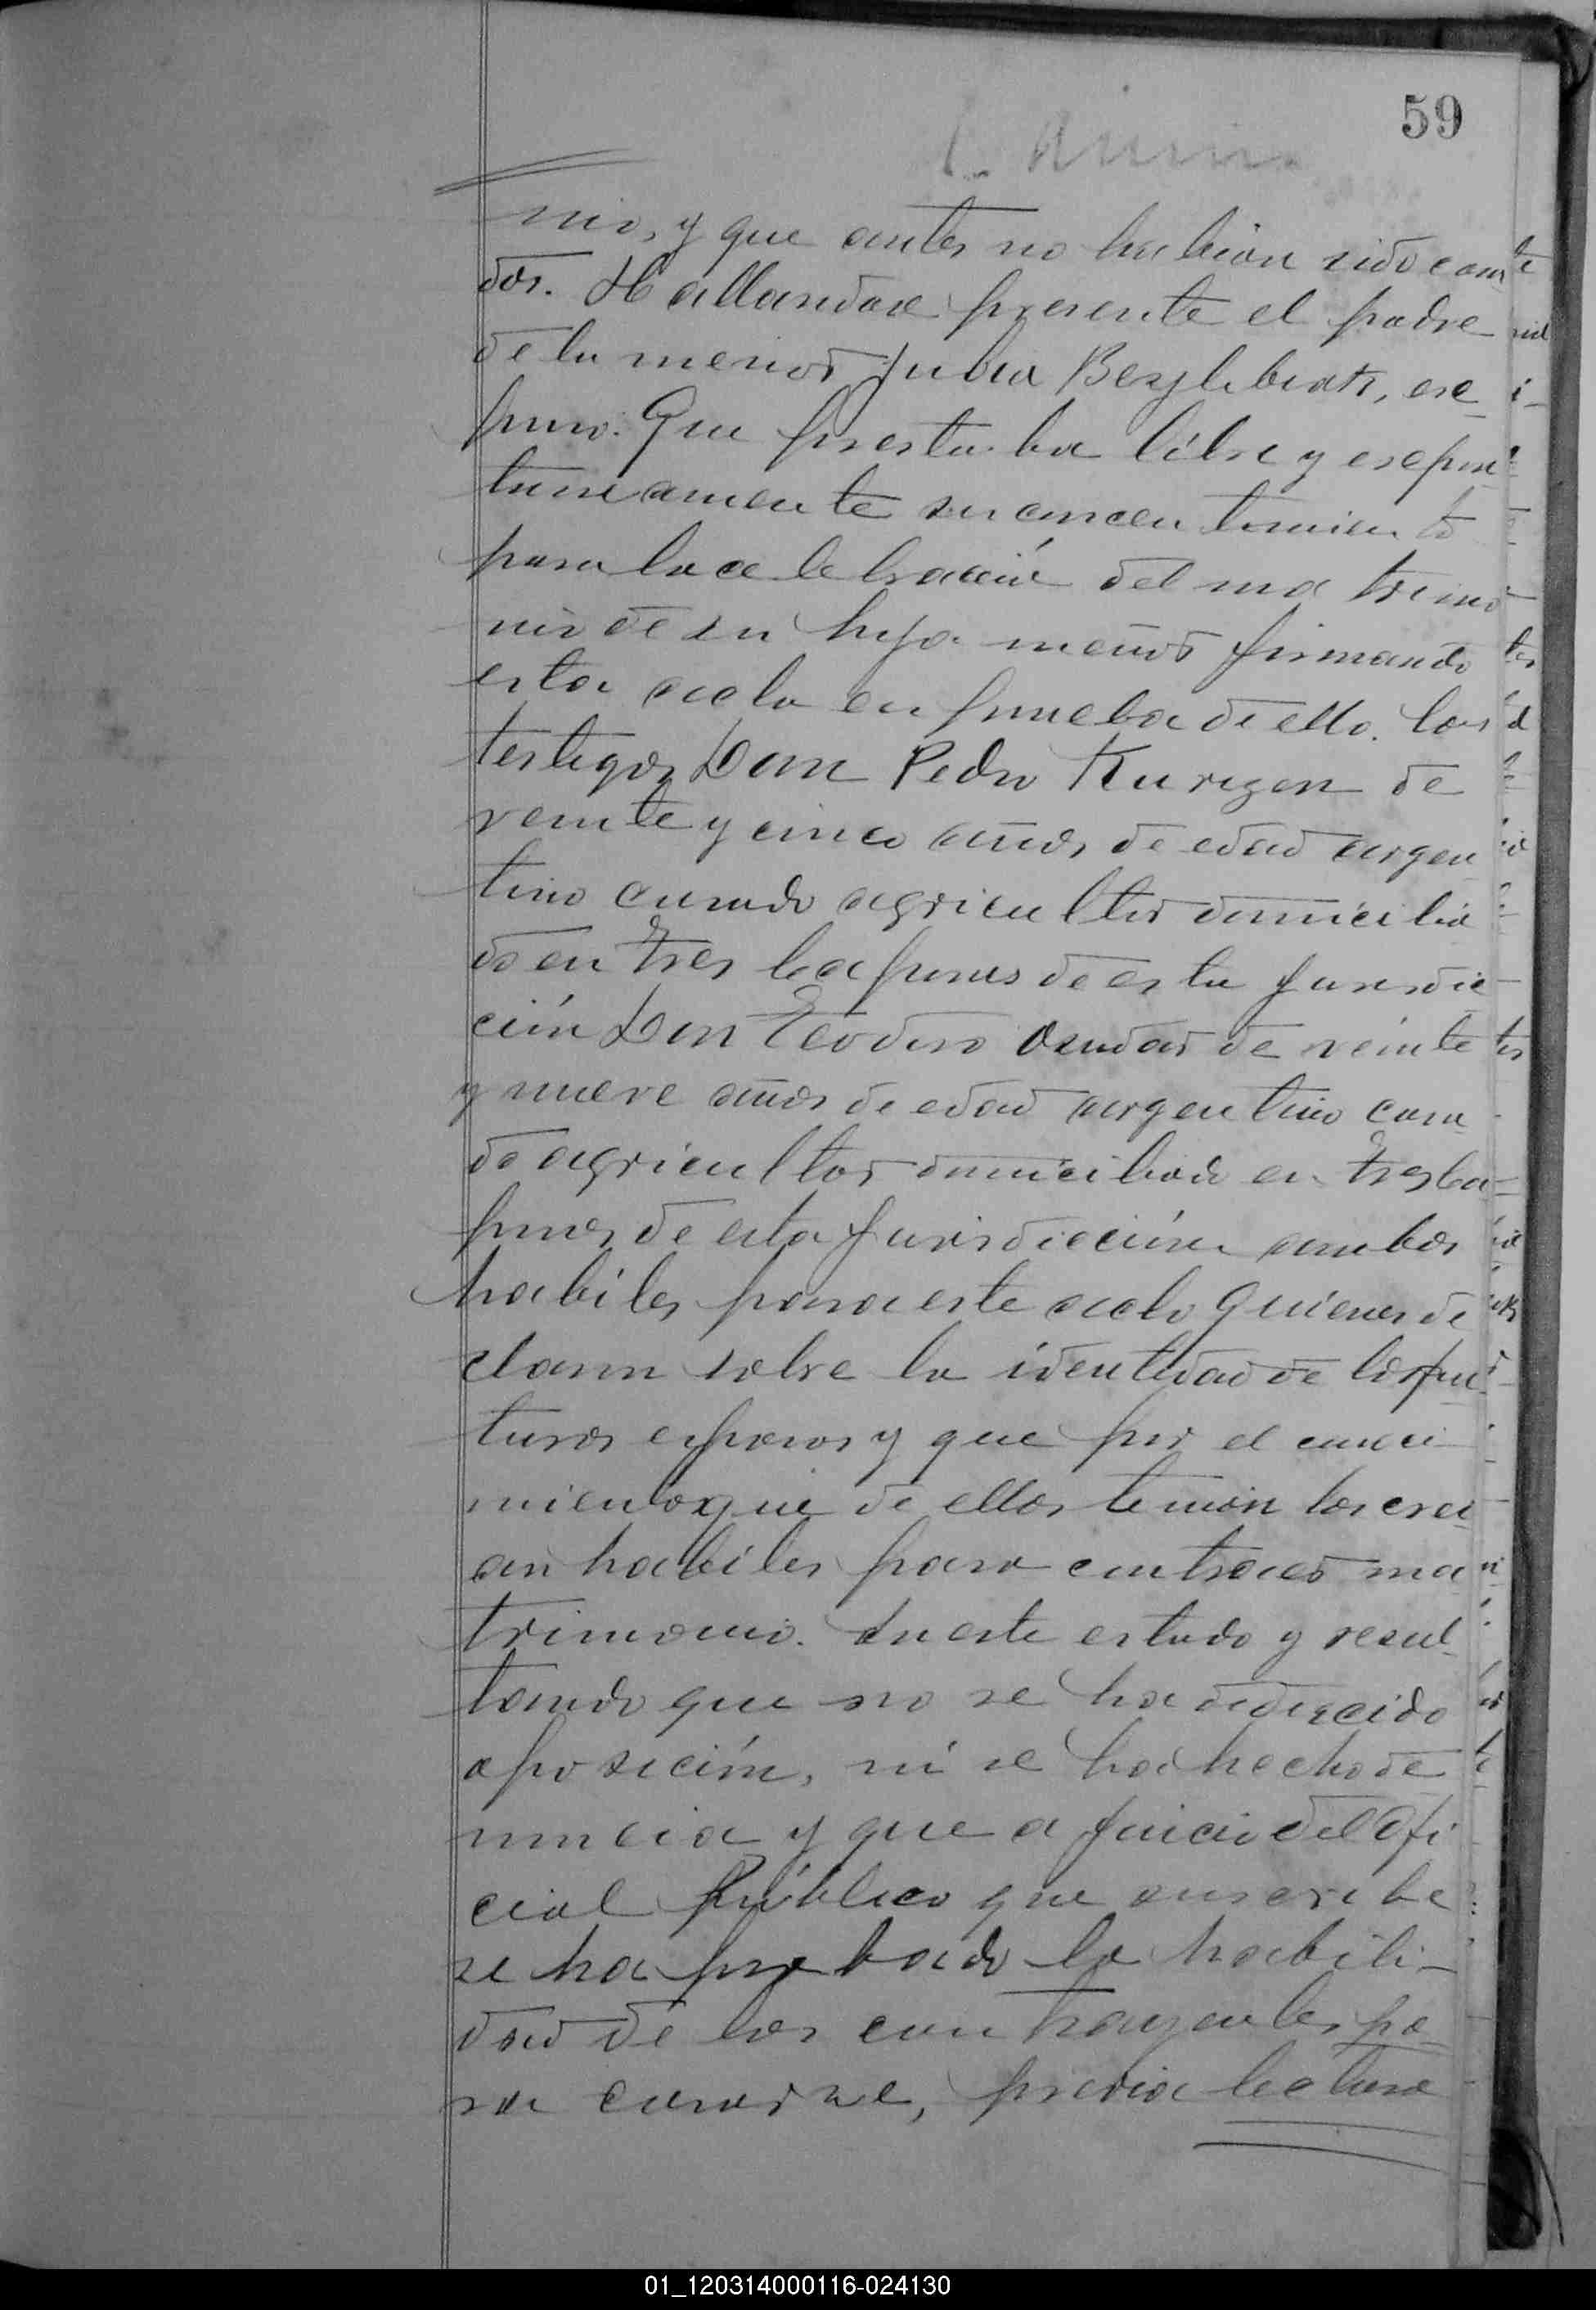 59
nio, y que antes no habían sido casa
dos. Hallandose presente el padre
de la menor Julia Bezlebiak, ex
puso: Que prestaba libre y expon
taneamente su consentimiento
para la celebración del matrimo
nio de su hija menor firmando
esta acta en prueba de ello. Los
testigos Don Pedro Kurigen de
veinte y cinco años de edad argen
tino casado agricultor domicilia
do en Tres Capones de esta jurisdic
ción Don Teodoro de veinte
y nueve años de edad argentino casa
do agricultor domiciliado en Tres Ca
pones de esta jurisdicción ambos
habiles para este acto quienes de
claran sobre la identidad de los fu
turos esposos y que por el conoci
miento que de ellos tenian los crei
an habiles para contraer ma
trimonio. En este estado y resul
tando que no se ha deducido
oposición, ni se ha hecho de
nuncia y que a juicio del Ofi
cial Público que suscribe
se ha probado la habili-
dad de los contrayentes pa-
ra casarse, previa lectura
01_120314000116-024130